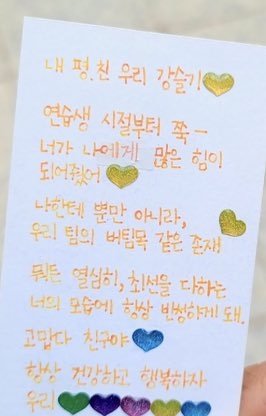 내 평.친 우리 강슬기
연습생 시절부터 쭉 ー
너가 나에게 많은 힘이
되어줬어
나한테 뿐만 아니라,
우리 팀의 버팀목 같은 존재
뭐든 열심히, 최선을 다하는
너의 모습에 항상 반성하게 돼.
고맙다 친구야
항상 건강하고 행복하자
우리